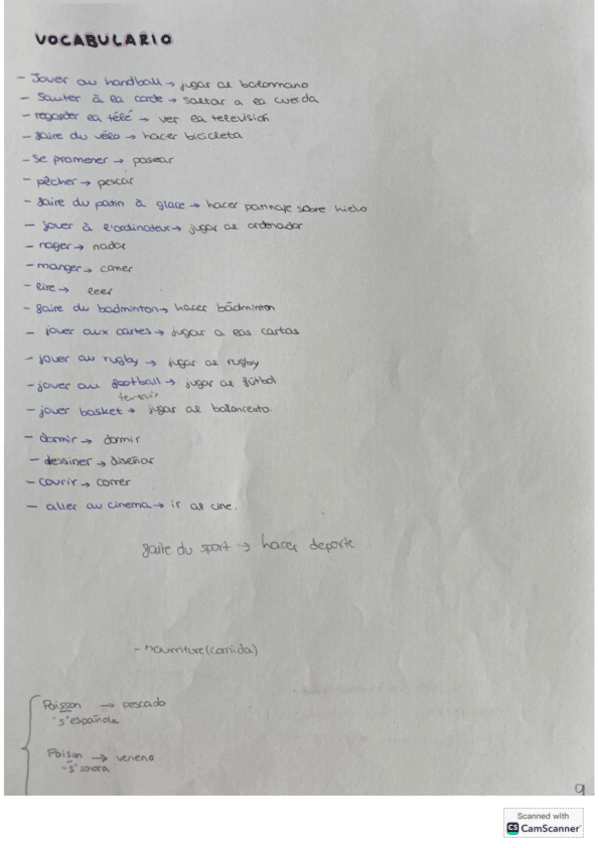 VOCABULARIO
- Jouer au handball → jugar al balonmano
- Sauter à la corde → saltar a la cuerda
- regarder la télé → ver la televisión
- faire du vélo → hacer bicicleta
- Se promener → pasear
- pêcher → pescar
- faire du patin à glace → hacer patinaje sobre hielo
- jouer à l'ordinateur → jugar al ordenador
- nager → nadar
- manger → comer
- lire → leer
- faire du badminton → hacer bádminton
- jouer aux cartes → jugar a las cartas
- jouer au rugby → jugar al rugby
- jouer au football → jugar al fútbol
- jouer basket → jugar al baloncesto.
- dormir → dormir
- dessiner → diseñar
- courir → correr
- aller au cinema → ir al cine.
faire du sport → hacer deporte
- nourriture (comida)
Poisson → pescado
's' española
Poison → veneno
- 's' sonora
9
Scanned with
CS CamScanner